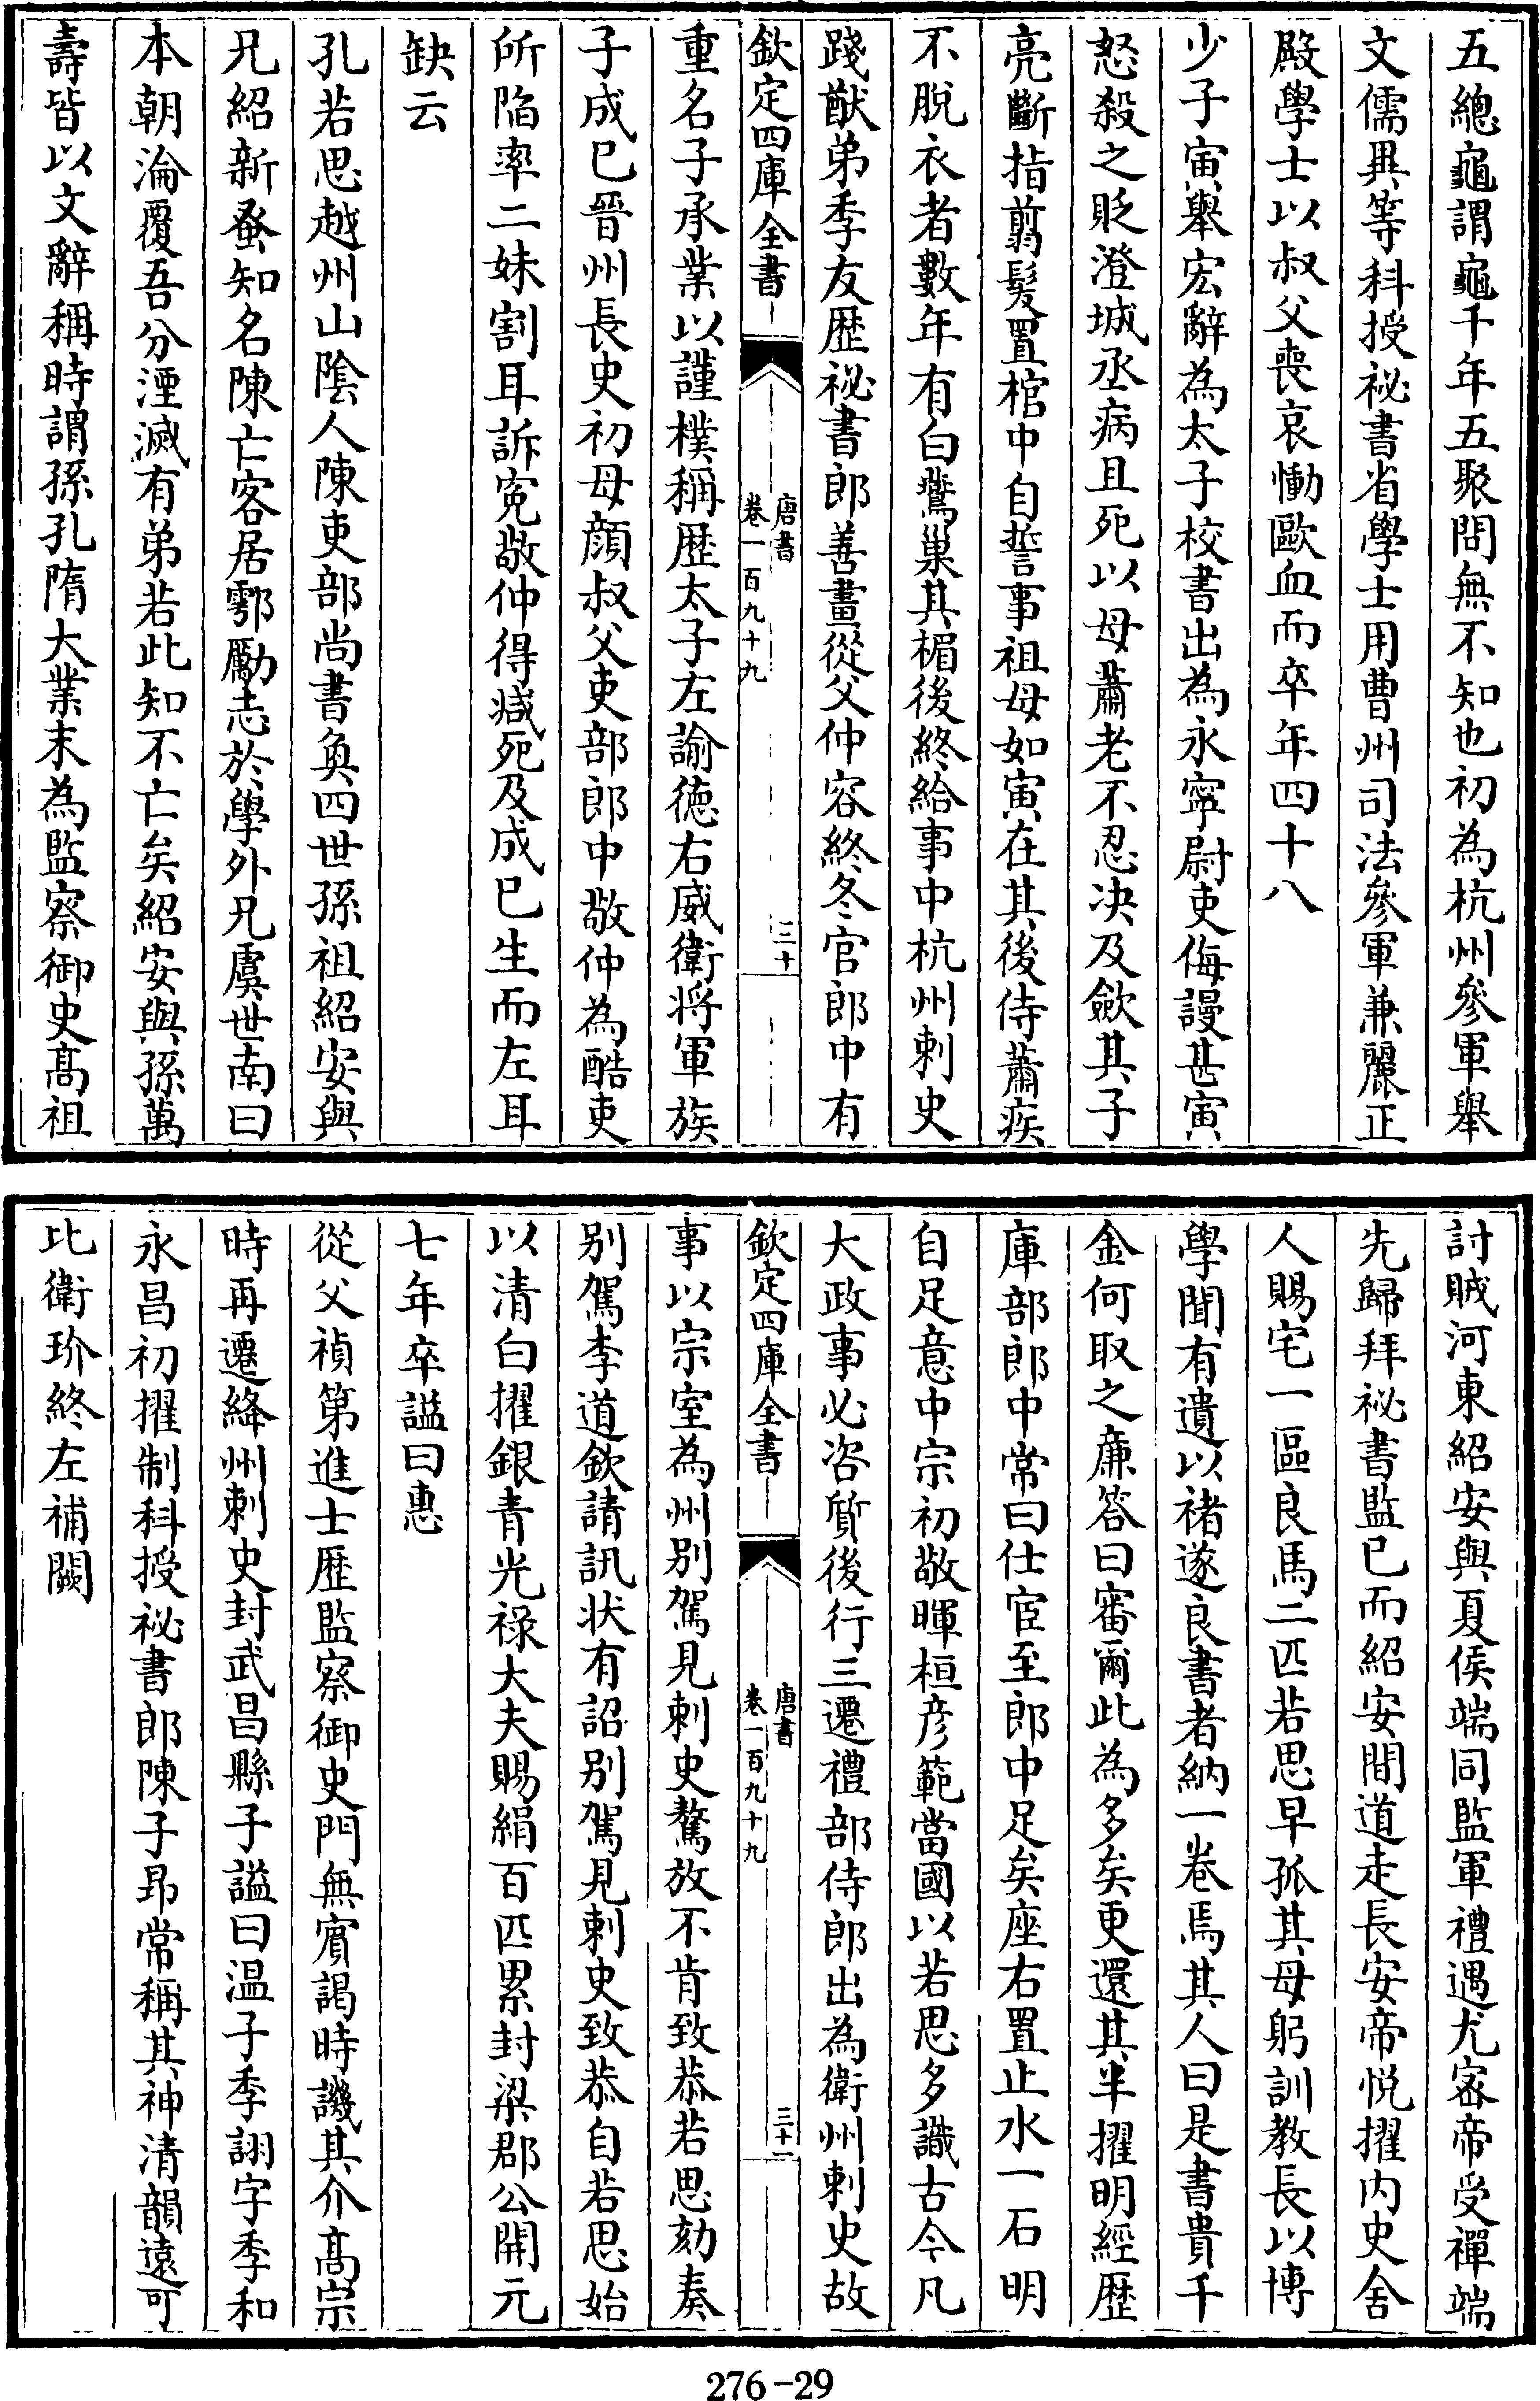 五總龜謂龜千年五聚問無不知也初為杭州參軍舉
文儒異等科授祕書省學士用曹州司法參軍兼麗正
殿學士以叔父喪哀慟歐血而卒年四十八
少子寅舉宏辭為太子校書出為永寧尉吏侮謾甚寅
怒殺之貶澄城丞病且死以母蕭老不忍决及歛其子
亮斷指翦髮置棺中自誓事祖母如寅在其後侍蕭疾
不脫衣者數年有白鷰巢其楣後終給事中杭州刺史
踐猷弟季友歷祕書郎善畫從父仲容終冬官郎中有
欽定四庫全書
唐書
卷一百九十九
三十
重名子承業以謹樸稱歷太子左諭徳右威衛將軍族
子成巳晉州長史初母顔叔父吏部郎中敬仲為酷吏
所陷率二妹割耳訴寃敬仲得减死及成巳生而左耳
缺云
孔若思越州山隂人陳吏部尚書奐四世孫祖紹安與
兄紹新蚤知名陳亡客居鄠勵志於學外兄虞世南曰
本朝淪覆吾分湮滅有弟若此知不亡矣紹安與孫萬
壽皆以文辭稱時謂孫孔隋大業末為監察御史髙祖
討賊河東紹安與夏侯端同監軍禮遇尤宻帝受禪端
先歸拜祕書監已而紹安間道走長安帝悅擢内史舍
人賜宅一區良馬二匹若思早孤其母躬訓教長以博
學聞有遺以禇遂良書者納一卷焉其人曰是書貴千
金何取之廉答曰審爾此為多矣更還其半擢明經歷
庫部郎中常曰仕宦至郎中足矣座右置止水一石明
自足意中宗初敬暉桓彦範當國以若思多識古今凡
大政事必咨質後行三遷禮部侍郎出為衛州刺史故
欽定四庫全書
唐書
卷一百九十九
三十一
事以宗室為州别駕見刺史驁放不肯致恭若思劾奏
别駕李道欽請訊状有詔别駕見刺史致恭自若思始
以清白擢銀青光禄大夫賜絹百匹累封梁郡公開元
七年卒諡曰惠
從父禎第進士歷監察御史門無賓謁時譏其介髙宗
時再遷絳州刺史封武昌縣子諡曰温子季詡字季和
永昌初擢制科授祕書郎陳子昂常稱其神清韻遠可
比衛玠終左補闕
276-29